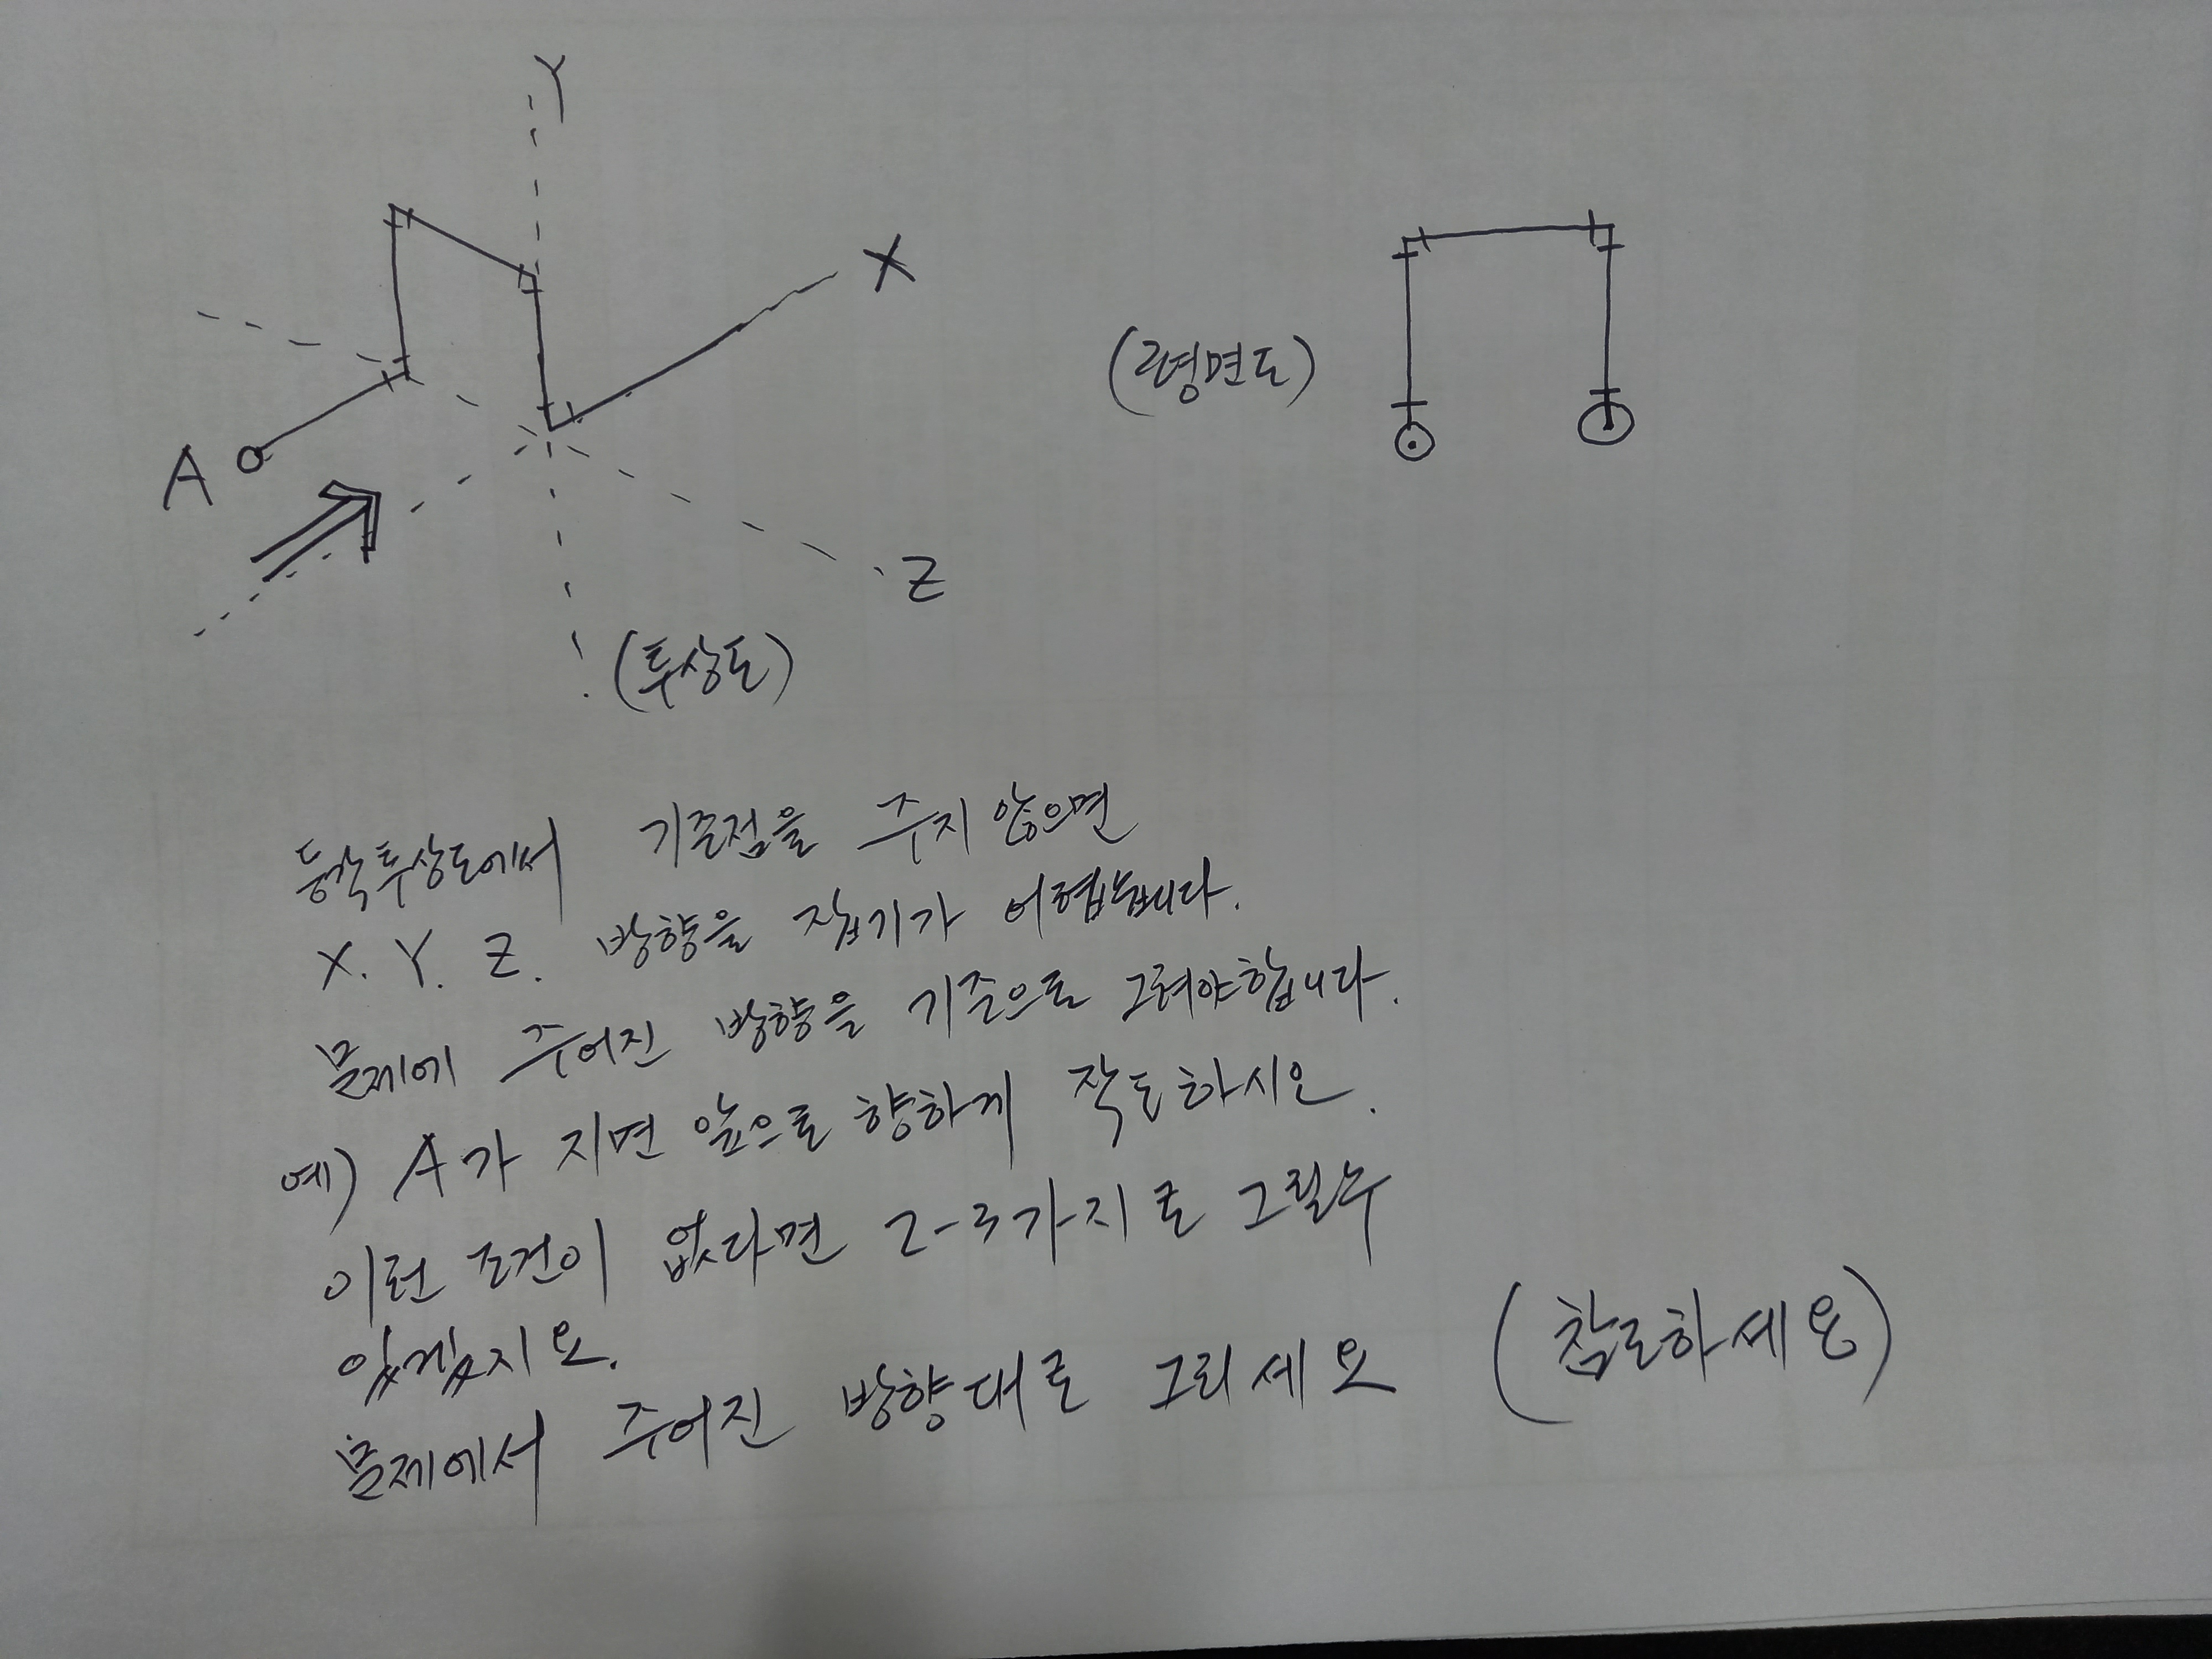 Y
X
A
Z
(투상도)
(평면도)
등각투상도에서 기준점을 주지 않으면
X. Y. Z. 방향을 잡기가 어렵습니다.
문제에 주어진 방향을 기준으로 그려야합니다.
예) A가 지면 앞으로 향하게 작도하시오.
이런 조건이 없다면 2-3가지로 그릴수
있겠지요.
문제에서 주어진 방향대로 그리세요 (참고하세요)